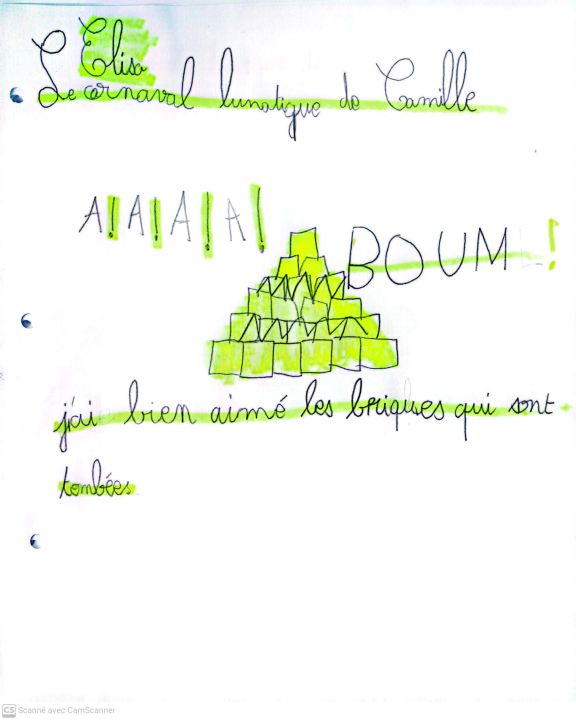 Elisa
Le carnaval lunatique de Camille
A! A! A! A!
BOUM!
j'ai bien aimé les briques qui sont
tombées
CS Scanné avec CamScanner